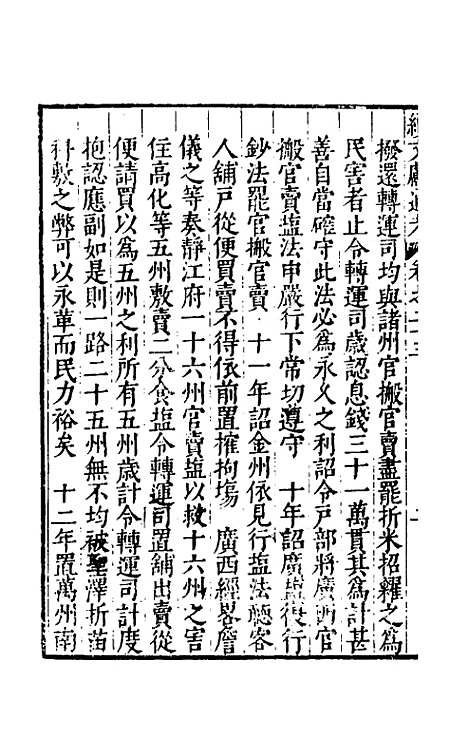 撥還轉運司均與諸州官搬官賣盡罷折米招糴之爲
民害者止令轉運司歲認息錢三十一萬貫其爲計甚
善自當確守此法必爲永久之利詔令戸部將廣西官
搬官賣塩法申嚴行下常切遵守　十年詔廣塩復行
鈔法罷官搬官賣　十一年詔金州依見行塩法聽客
人舖戸從便買賣不得依前置㩁拘塲　廣西經畧詹
儀之等奏靜江府一十六州官賣塩以救十六州之害
住高化等五州敷賣二分食塩令轉運司置舖出賣從
便請買以爲五州之利所有五州歲計令轉運司計度
抱認應副如是則一路二十五州無不均被聖澤折苗
科敷之弊可以永革而民力裕矣　十二年置萬州南